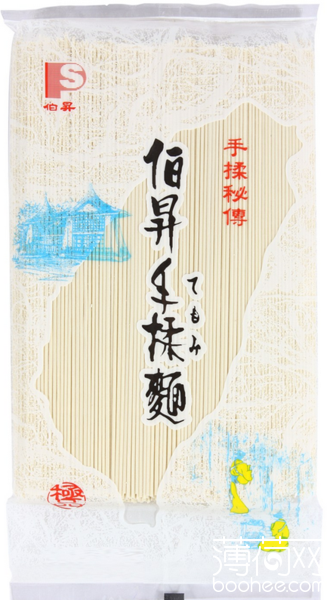 S
伯昇
手揉秘傳
伯昇手揉麵
てもみ
極
薄荷网
boohee.com